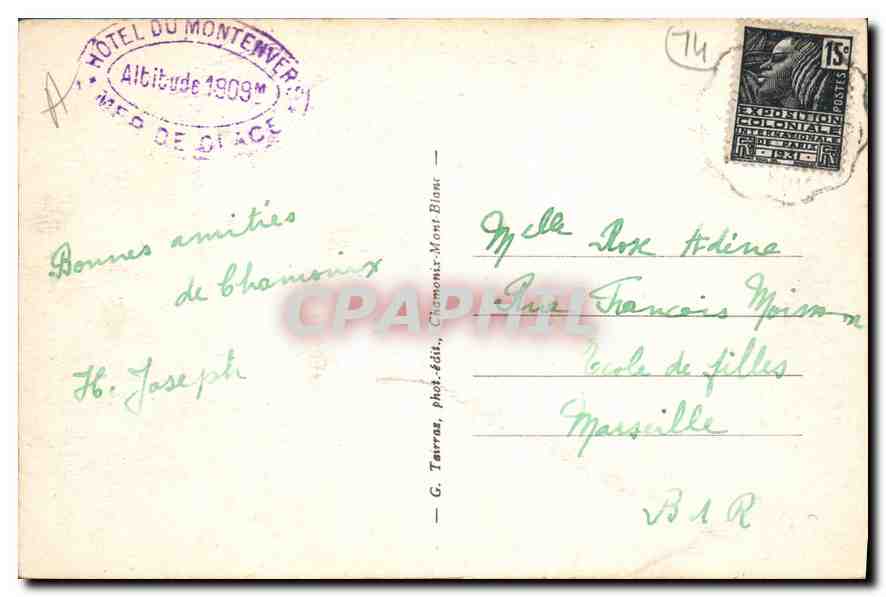 HÔTEL DU MONTENVERS
Altitude 1909M
MER DE GLACE
A
14
15c
POSTES
EXPOSITION
COLONIALE
INTERNATIONALE
DE PARIS
RF 1931 RF
Bonnes amitiés
de Chamonix
H. Joseph
— G. Tairraz, phot.-édit., Chamonix-Mont-Blanc —
Melle Rose Adène
Rue François Moisson
Ecole de filles
Marseille
B A R
CPAPHIL